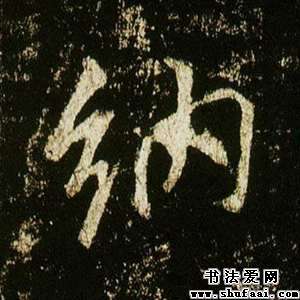 纳
书法爱网
www.shufaai.com